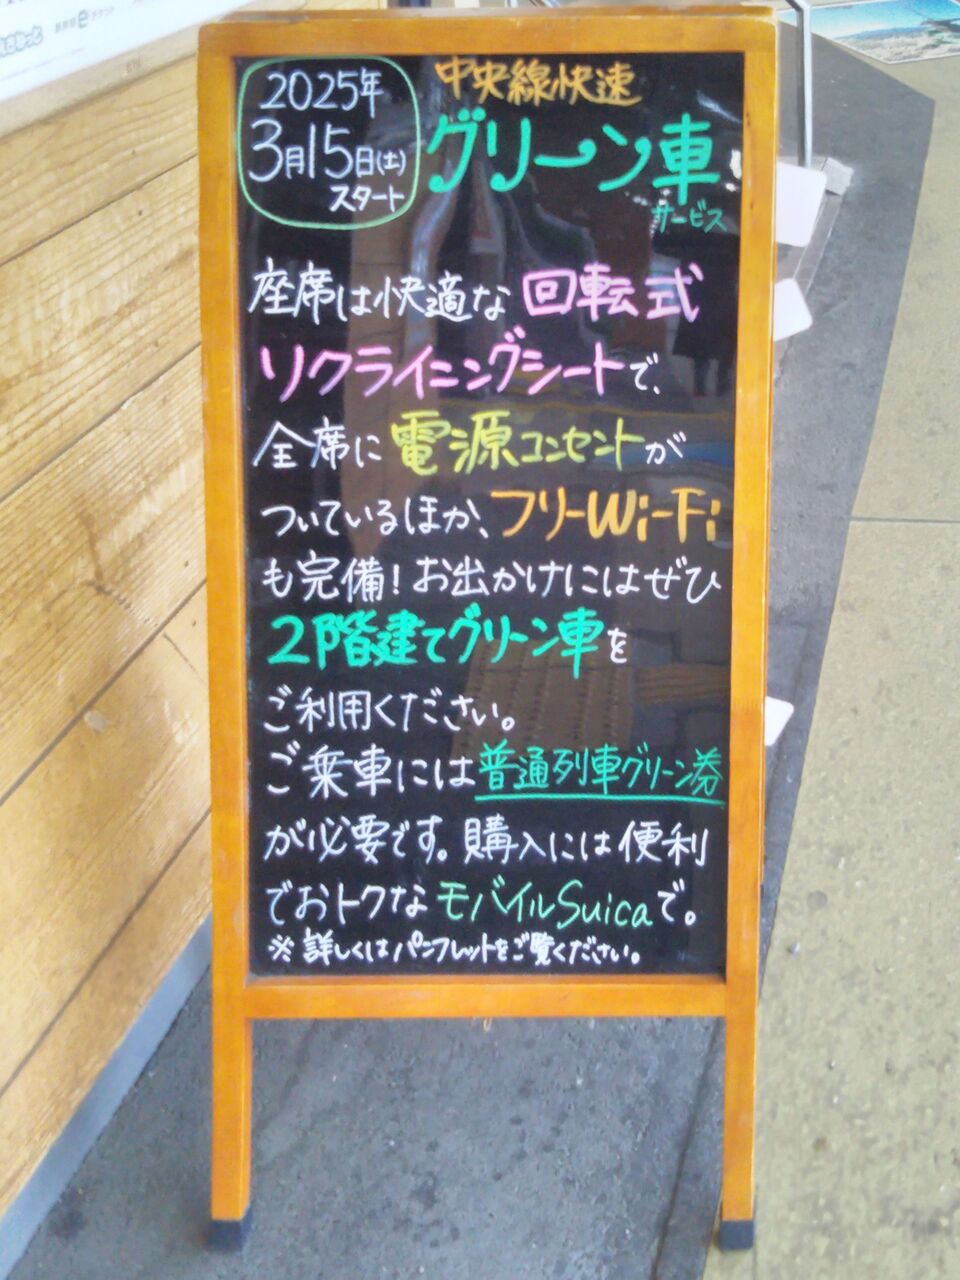 2025年
3月15日(土)
スタート
中央線快速
グリーン車
サービス
座席は快適な回転式
リクライニングシートで、
全席に電源コンセントが
ついているほか、フリーWi-Fi
も完備!お出かけにはぜひ
2階建てグリーン車を
ご利用ください。
ご乗車には普通列車グリーン券
が必要です。購入には便利
でおトクなモバイルSuicaで。
※詳しくはパンフレットをご覧ください。